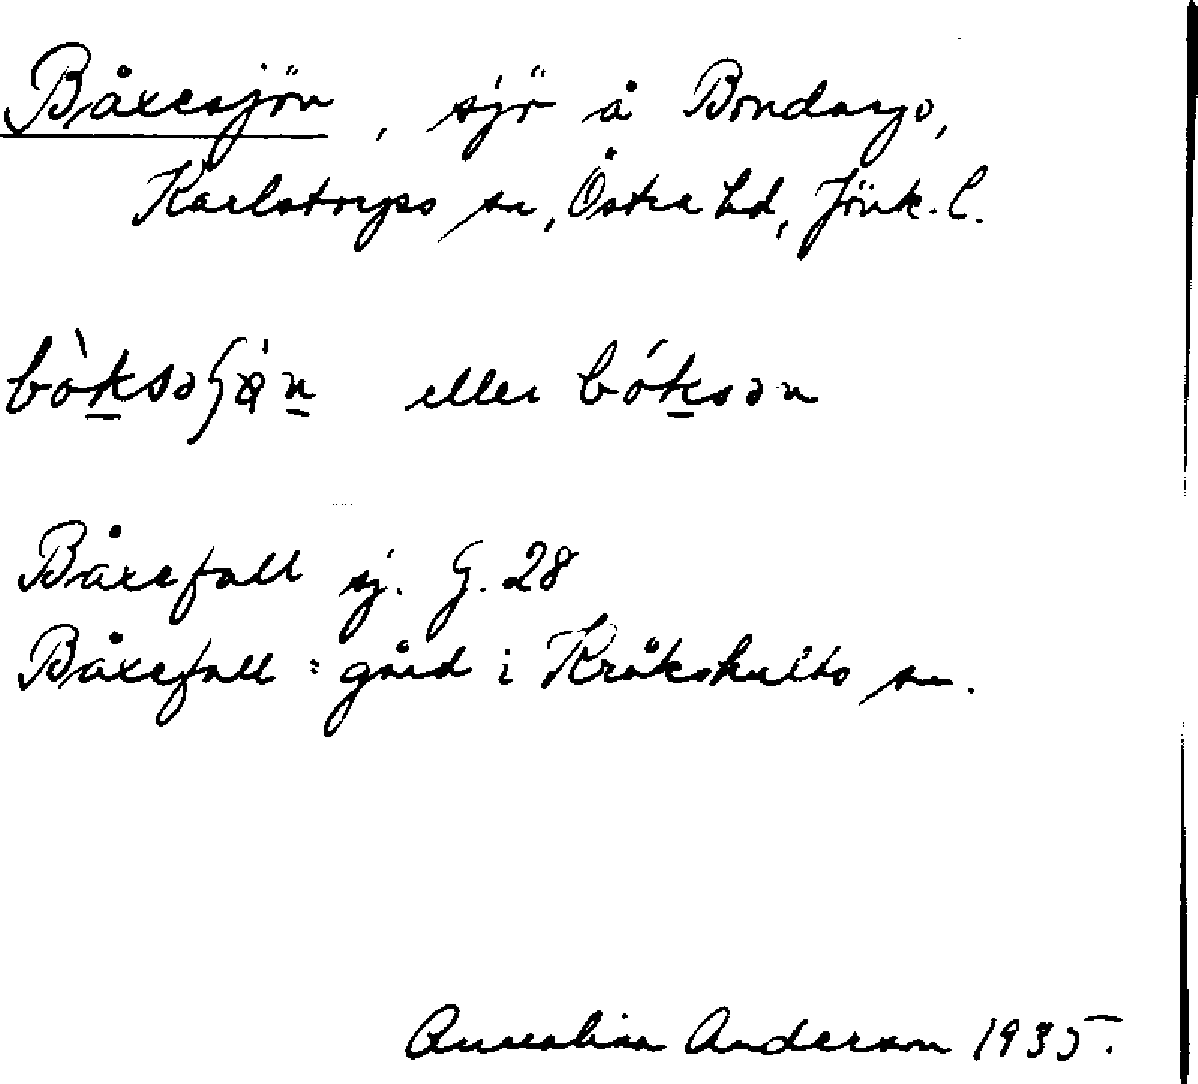 Båxesjön, sjö å Bondaryo,
Karlstorps sn, Östra hd, Jönk. l.
eller
Båxefall sj. G. 28
Båxefall = gård i Kråkshults sn.
Annalisa Anderson 1935.